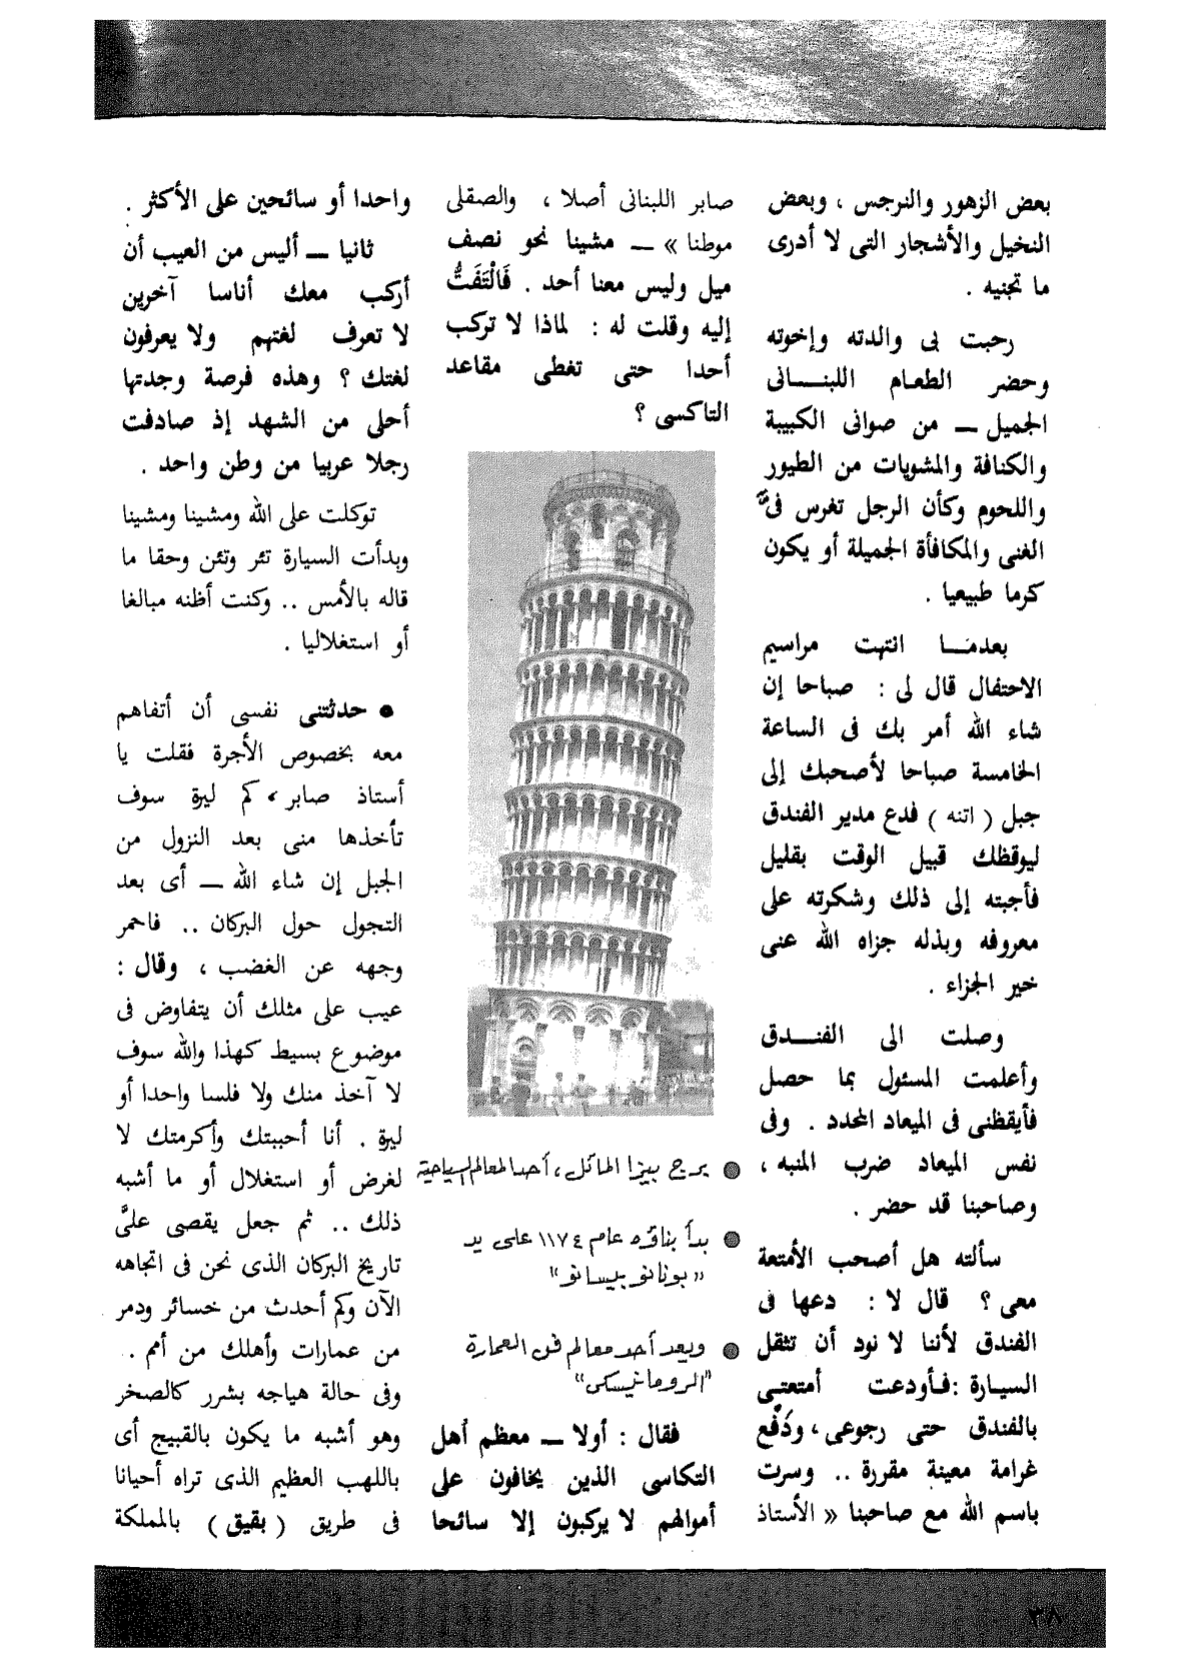 بعض الزهور والنرجس ، وبعض
النخيل والأشجار التى لا أدرى
ما تجنيه .
رحبت بى والدته وإخوته
وحضر الطعام اللبنـــانى
الجميل ــ من صوانى الكبيبة
والكنافة والمشويات من الطيور
واللحوم وكأن الرجل تغرس فىّ
الغنى والمكافأة الجميلة أو يكون
كرما طبيعيا .
بعدمــا انتهت مراسيم
الاحتفال قال لى : صباحا إن
شاء الله أمر بك فى الساعة
الخامسة صباحا لأصحبك إلى
جبل ( اتنه ) فدع مدير الفندق
ليوقظك قبيل الوقت بقليل
فأجبته إلى ذلك وشكرته على
معروفه وبذله جزاه الله عنى
خير الجزاء .
وصلت الى الفنـــدق
وأعلمت المسئول بما حصل
فأيقظنى فى الميعاد المحدد . وفى
نفس الميعاد ضرب المنبه ،
وصاحبنا قد حضر .
سألته هل أصحب الأمتعة
معى ؟ قال لا : دعها فى
الفندق لأننا لا نود أن تثقل
السيارة :فـأودعت أمتعتـى
بالفندق حتى رجوعى ، ودَفْع
غرامة معينة مقررة .. وسرت
باسم الله مع صاحبنا « الأستاذ
صابر اللبنانى أصلا ، والصقلى
موطنا » ــ مشينا نحو نصف
ميل وليس معنا أحد . فَالْتَفَتُّ
إليه وقلت له : لماذا لا تركب
أحدا حتى تغطى مقاعد
التاكسى ؟
● برج بيزا المائل ، أحد المعالم السياحية
● بدأ بناؤه عام ١١٧٤ على يد
« بونانو بيسانو »
● ويعد أحد معالم فن العمارة
"الرومانيسكى"
فقال : أولا ــ معظم أهل
التكاسى الذين يخافون على
أموالهم لا يركبون إلا سائحا
واحدا أو سائحين على الأكثر .
ثانيا ــ أليس من العيب أن
أركب معك أناسا آخرين
لا تعرف لغتهم ولا يعرفون
لغتك ؟ وهذه فرصة وجدتها
أحلى من الشهد إذ صادفت
رجلا عربيا من وطن واحد .
توكلت على الله ومشينا ومشينا
وبدأت السيارة تئر وتئن وحقا ما
قاله بالأمس .. وكنت أظنه مبالغا
أو استغلاليا .
● حدثتنى نفسى أن أتفاهم
معه بخصوص الأجرة فقلت يا
أستاذ صابر ، كم ليرة سوف
تأخذها منى بعد النزول من
الجبل إن شاء الله ــ أى بعد
التجول حول البركان .. فاحمر
وجهه عن الغضب ، وقال :
عيب على مثلك أن يتفاوض فى
موضوع بسيط كهذا والله سوف
لا آخذ منك ولا فلسا واحدا أو
ليرة . أنا أحببتك وأكرمتك لا
لغرض أو استغلال أو ما أشبه
ذلك .. ثم جعل يقصى علىَّ
تاريخ البركان الذى نحن فى اتجاهه
الآن وكم أحدث من خسائر ودمر
من عمارات وأهلك من أمم .
وفى حالة هياجه بشرر كالصخر
وهو أشبه ما يكون بالقبيج أى
باللهب العظيم الذى تراه أحيانا
فى طريق ( بقيق ) بالمملكة
٣٨